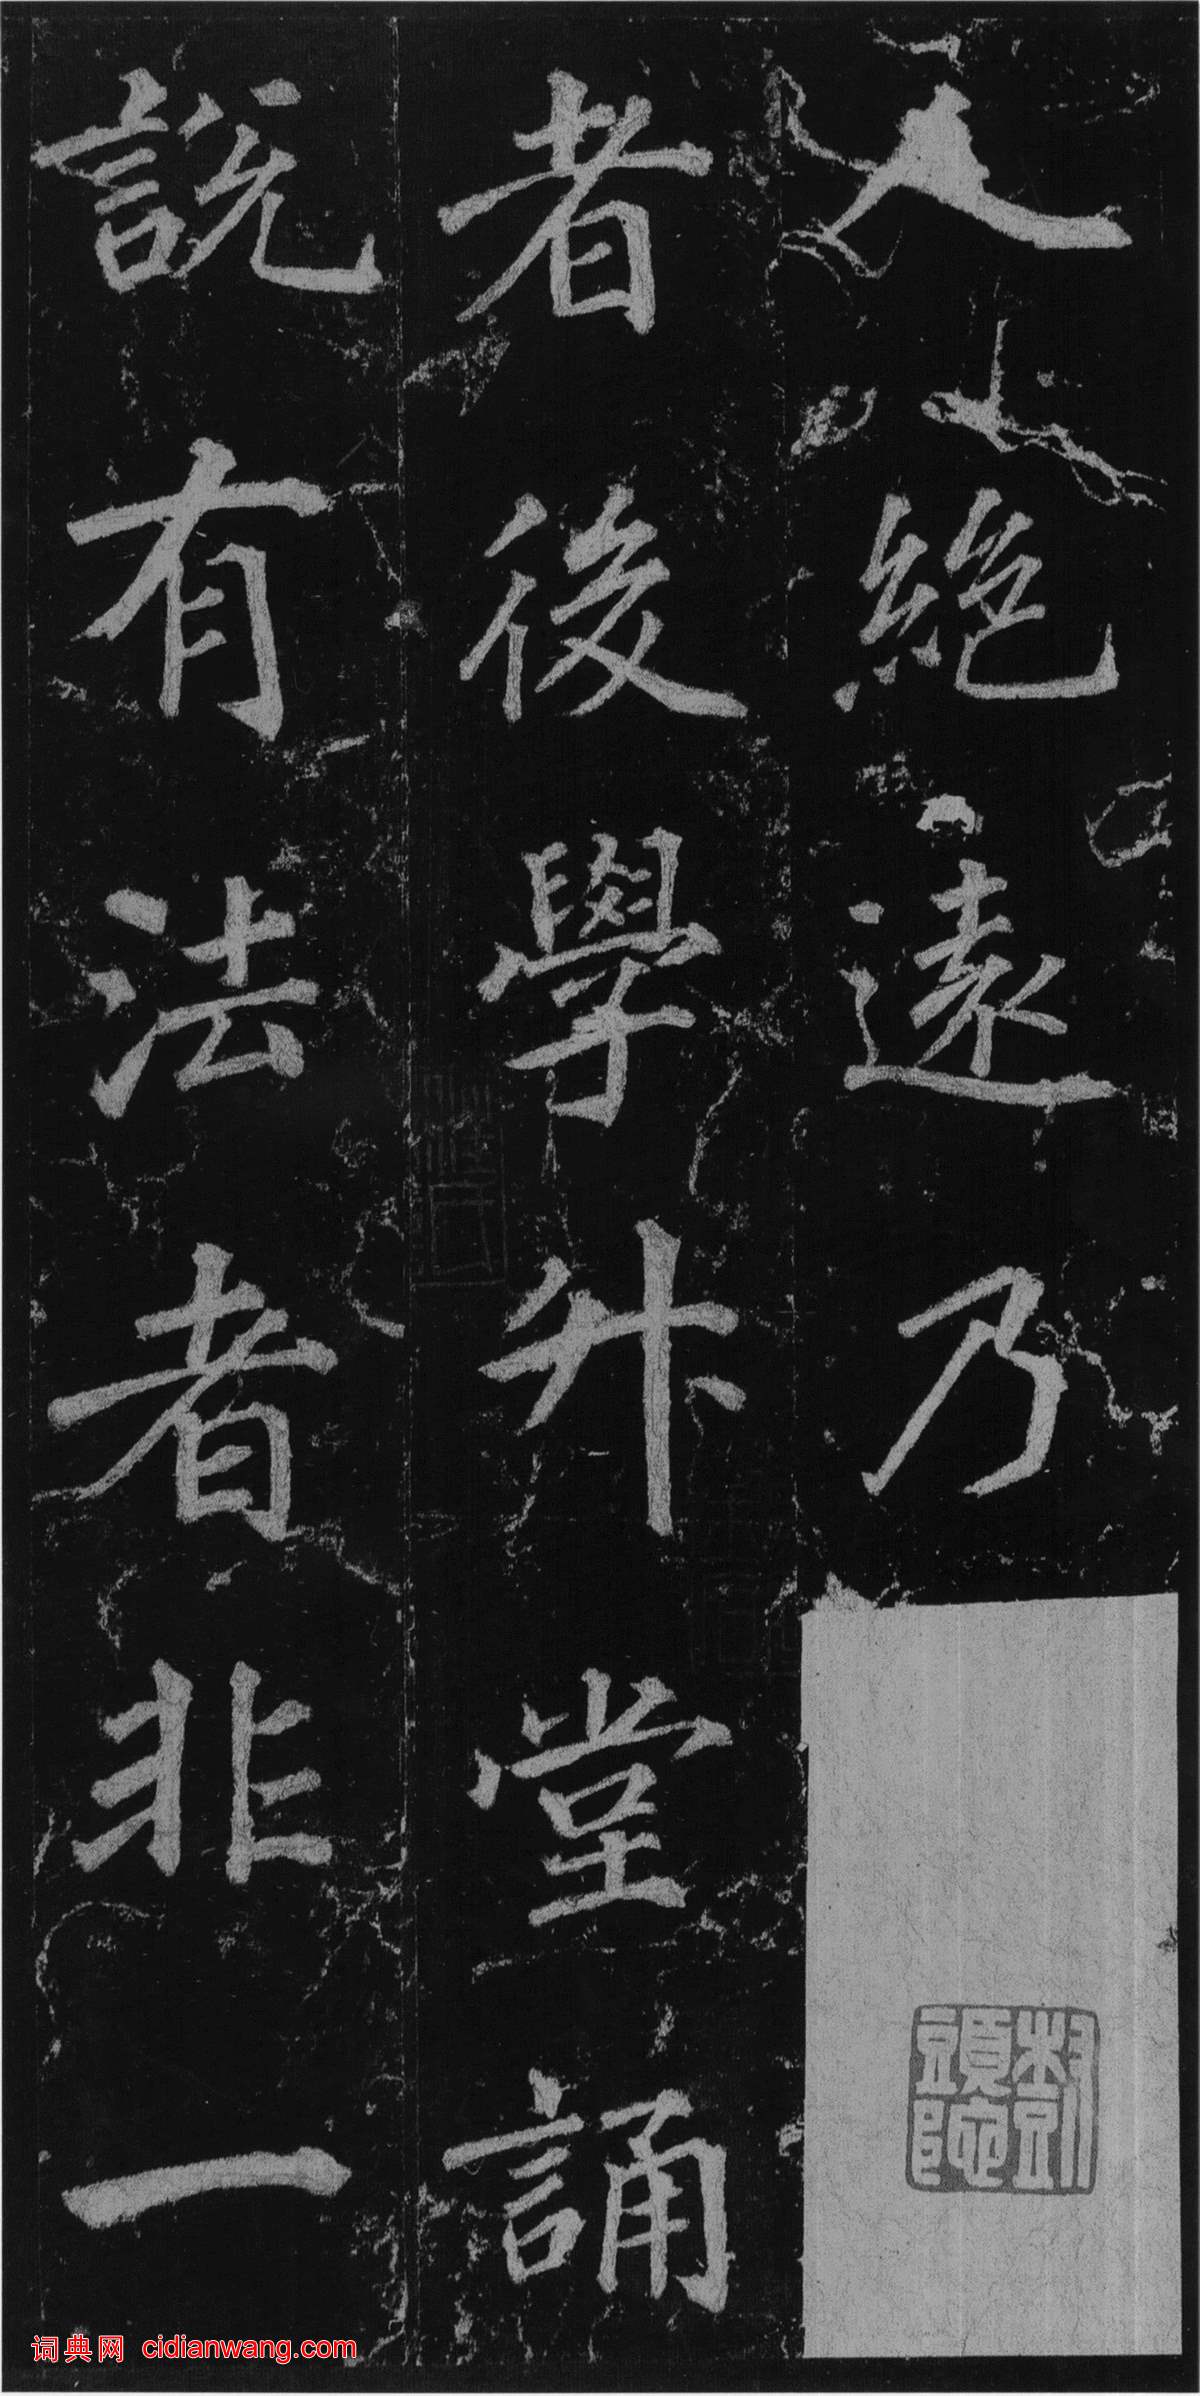 人絕遠乃
者後學升堂誦
說有法者非一
词典网 cidianwang.com